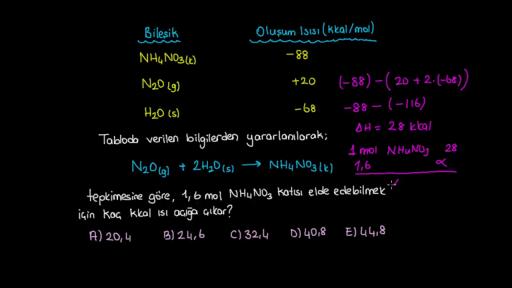 Bileşik Oluşum Isısı (kkal/mol)
NH4NO3(k) -88
N2O(g) +20
H2O(s) -68
(-88) - (20 + 2.(-68))
-88 - (-116)
ΔH = 28 kkal
1 mol NH4NO3 28
1,6 α
Tabloda verilen bilgilerden yararlanılarak;
N2O(g) + 2H2O(s) → NH4NO3(k)
tepkimesine göre, 1,6 mol NH4NO3 katısı elde edebilmek
için kaç kkal ısı açığa çıkar?
A) 20,4 B) 24,6 C) 32,4 D) 40,8 E) 44,8